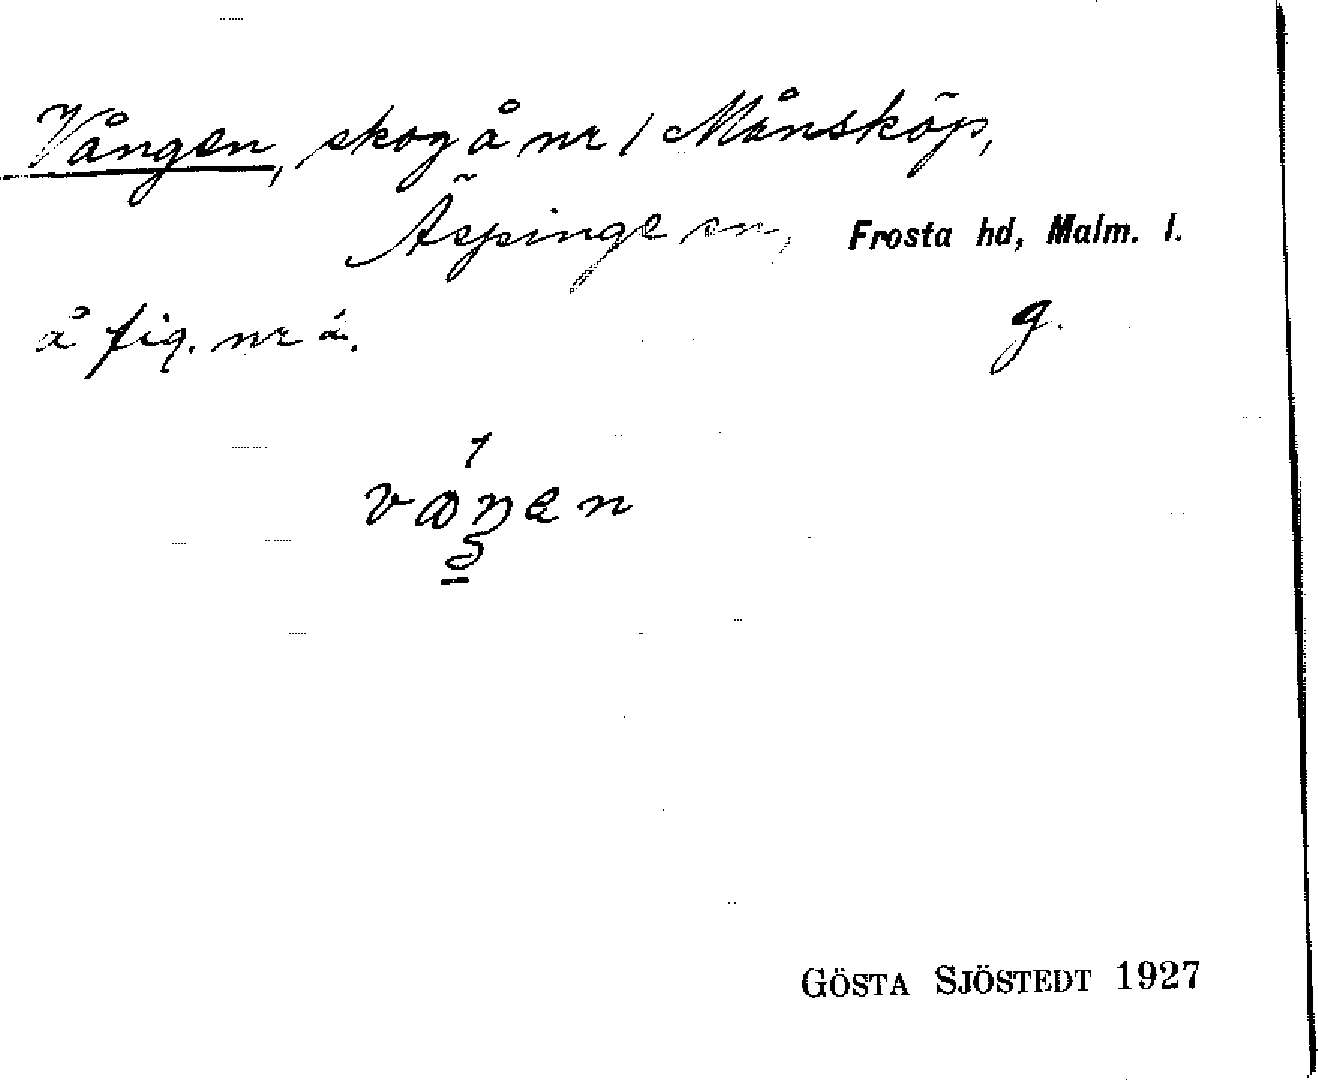 Vången, skog å nr 1 Månsköp,
Äspinge sn, Frosta hd, Malm. l.
å fig. nr å. g.
vaŋen
GÖSTA SJÖSTEDT 1927